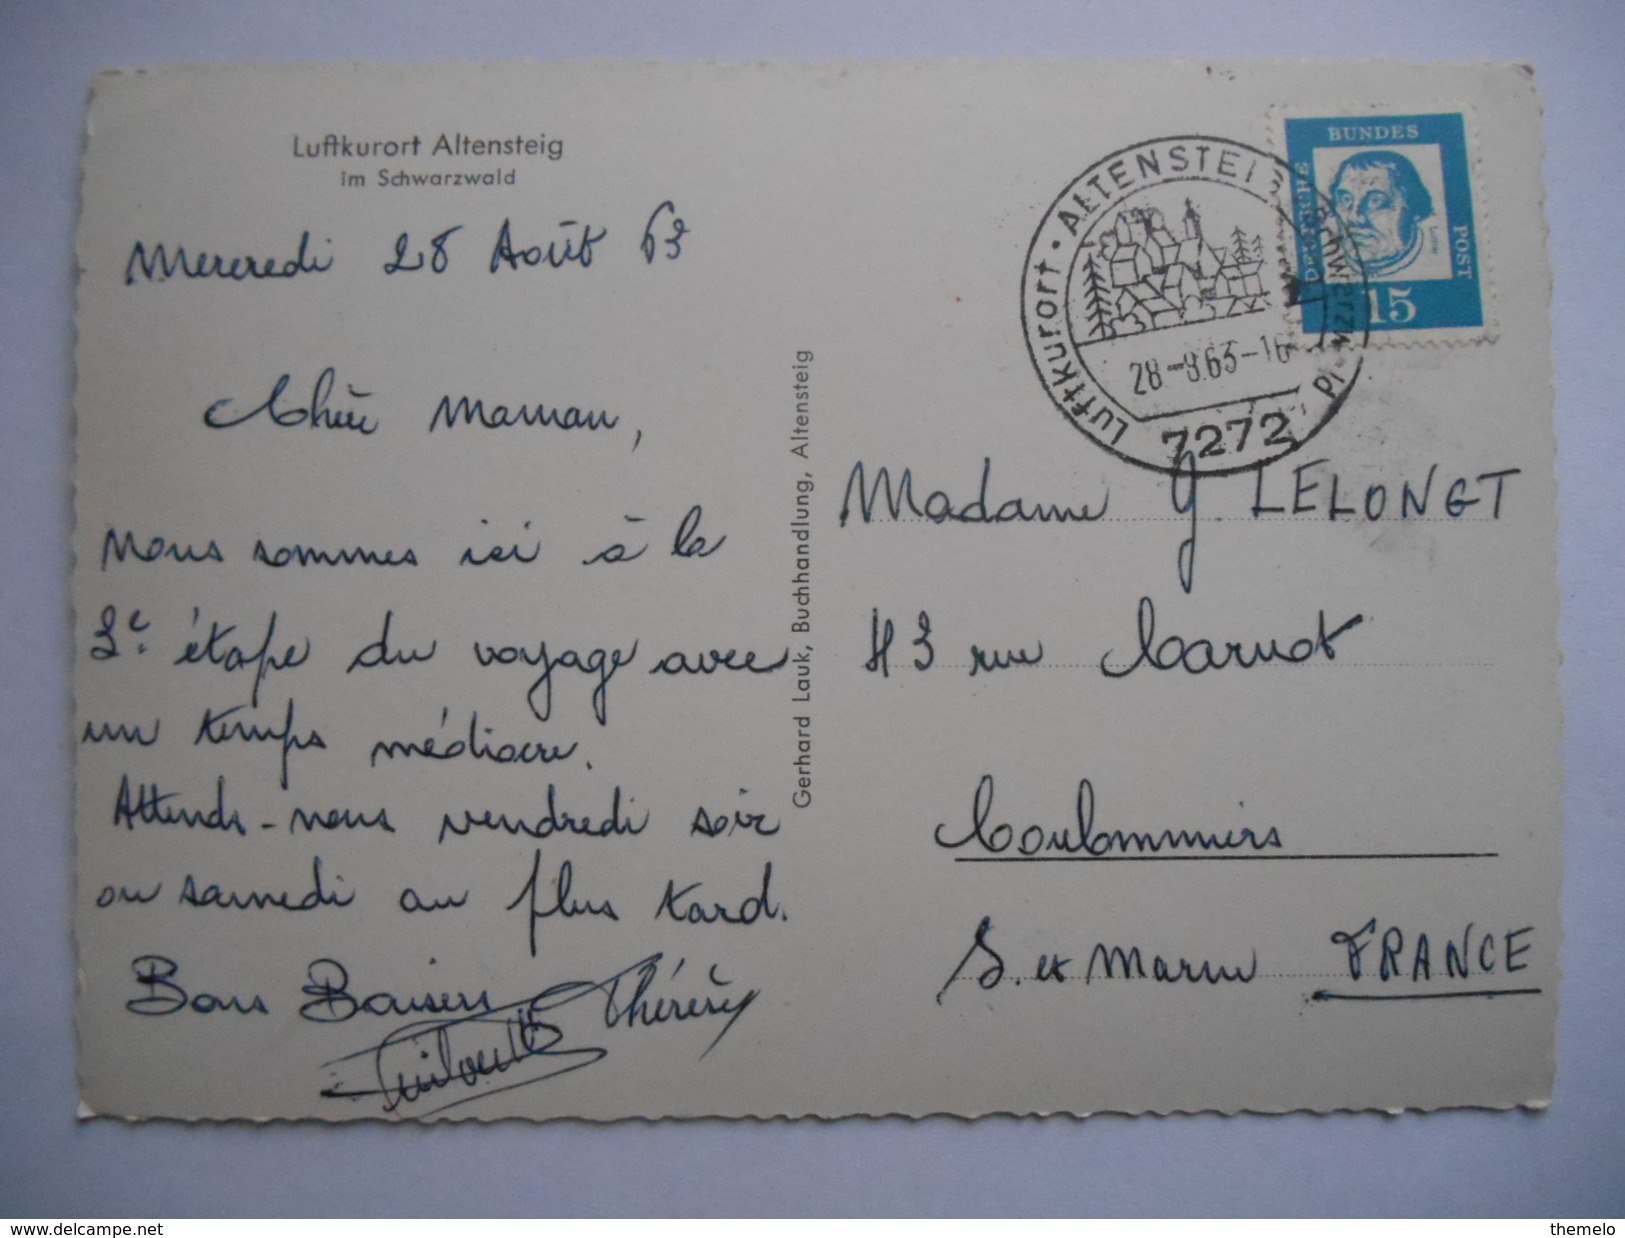 Luftkurort Altensteig
im Schwarzwald
Mercredi 28 Août 63
Chère Maman,
Nous sommes ici à la
3e étape du voyage avec
un temps médiocre.
Attends-nous vendredi soir
ou samedi au plus tard.
Bons Baisers Thérèse
Gerhard Lauk, Buchhandlung, Altensteig
Luftkurort • ALTENSTEIG
28-8.63-16
7272
DEUTSCHE BUNDES POST
Luther
15
Madame G. LELONGT
43 rue Carnot
Coulommiers
S. et Marne FRANCE
www.delcampe.net
themelo